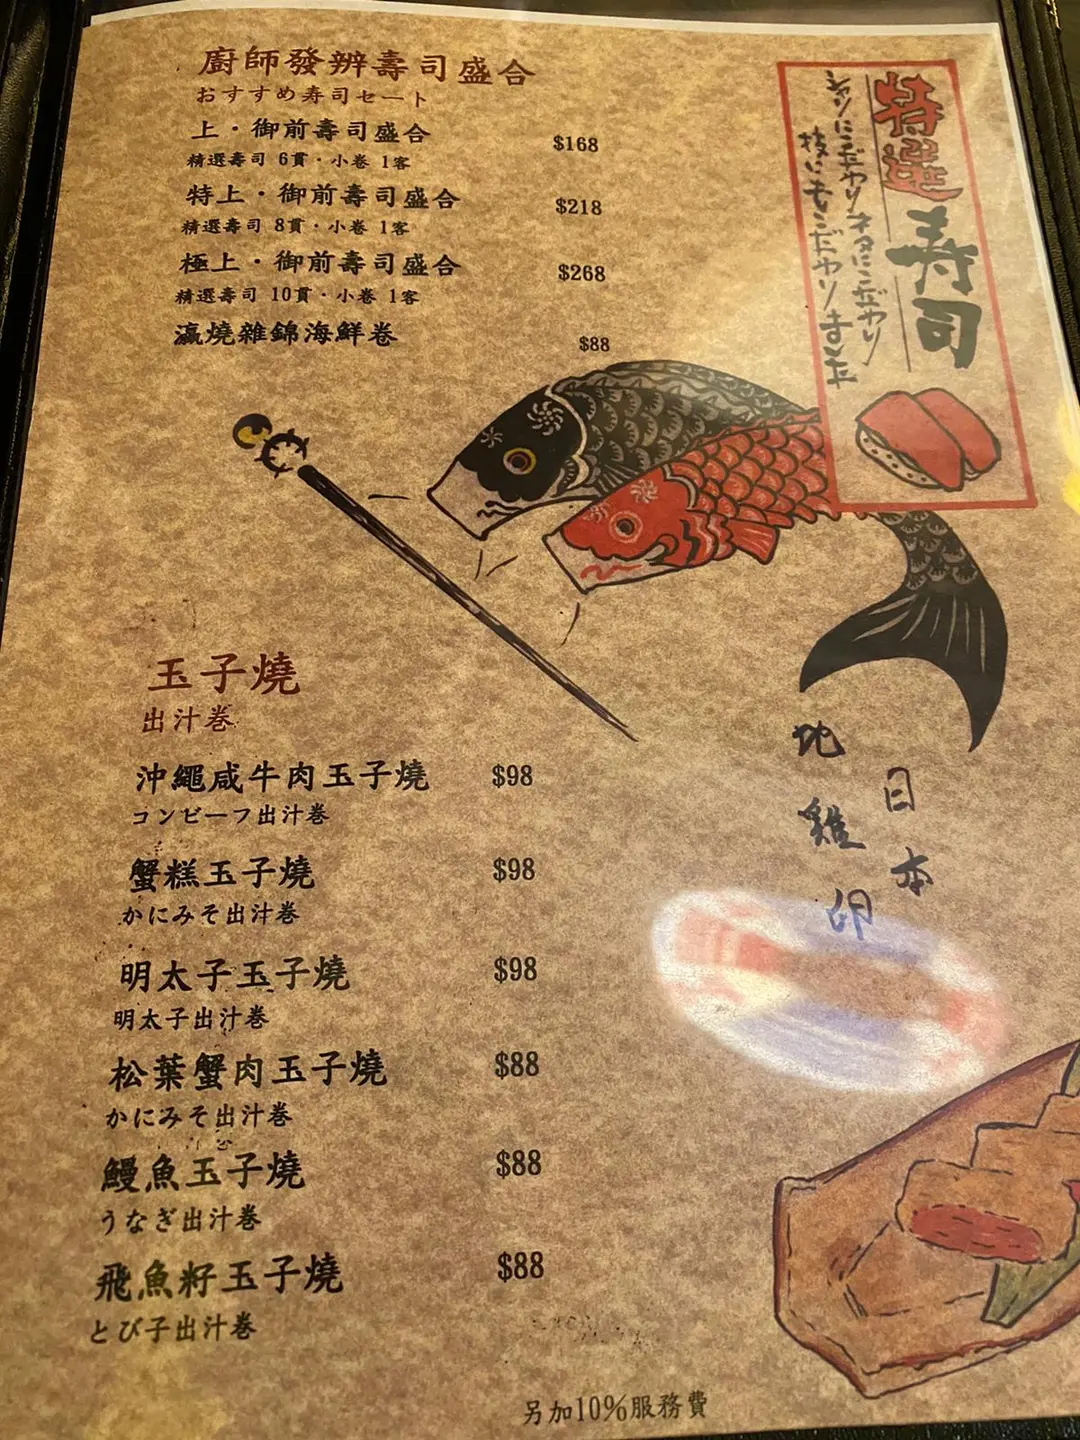 廚師發辦壽司盛合
おすすめ寿司セート
上・御前壽司盛合 $168
精選壽司 6貫・小卷 1客
特上・御前壽司盛合 $218
精選壽司 8貫・小卷 1客
極上・御前壽司盛合 $268
精選壽司 10貫・小卷 1客
瀛燒雜錦海鮮卷 $88
特選寿司
シャリにこだわりネタにこだわり
技にもこだわりました
玉子燒
出汁巻
沖繩咸牛肉玉子燒 $98
コンビーフ出汁巻
蟹糕玉子燒 $98
かにみそ出汁巻
明太子玉子燒 $98
明太子出汁巻
松葉蟹肉玉子燒 $88
かにみそ出汁巻
鰻魚玉子燒 $88
うなぎ出汁巻
飛魚籽玉子燒 $88
とび子出汁巻
日本
地雞卵
另加10%服務費